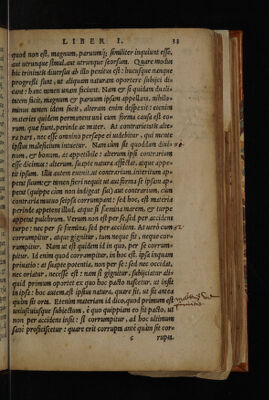 LIBER I. 33
quod non est, magnum, paruumq; similiter inquiunt esse,
aut utrunque simul, aut utrunque seorsum. Quare modus
hic trinitatis diuersus ab illo penitus est: hucusque nanque
progressi sunt, ut aliquam naturam oportere subiici di-
cant: hanc tamen unam faciunt. Nam et si quidam duali-
tatem facit, magnum et paruum ipsam appellans, nihilo-
minus tamen idem facit, alteram enim despexit: etenim
materies quidem permanet unà cum forma causa est eo-
rum, quæ fiunt, perinde ac mater. At contrarietatis alte-
ra pars, nec esse omnino persæpe ei uidebitur, qui mente
ipsius maleficium intuetur. Nam cum sit quoddam diui-
num, et bonum, et appetibile: alterum ipsi contrarium
esse dicimus: alterum, suapte natura affectat, atque appe-
tit ipsum. Illis autem euenit, ut contrarium, interitum ap-
petat suum: et tamen fieri nequit ut aut forma se ipsam ap-
petat (quippe cum non indigeat sui) aut contrarium, cum
contraria mutuo seipsa corrumpant: sed hoc, est materia
perinde appetens illud, atque si fœmina marem, et turpe
appetens pulchrum. Verum non est per se sed per accidens
turpe: nec per se fœmina, sed per accidens. At uerò tum
corrumpitur, atque gignitur, tum neque fit, neque cor-
rumpitur. Nam ut est quidem id in quo, per se corrum-
pitur. Id enim quod corrumpitur, in hoc est, ipsa inquam
priuatio: at suapte potentia, non per se: sed nec occidat,
nec oriatur, necesse est: nam si gignitur, subiiciatur ali-
quid primum oportet ex quo hoc pacto nascitur, ut insit
in ipso: hoc autem est ipsius natura, quare sit, ut sit antea
quàm sit orta. Etenim materiam id dico, quod primum est
uniuscuiusque subiectum, è quo quippiam eo sit pacto, ut
non per accidens insit: si corrumpitur, ad hoc ultimum
sanè proficiscetur: quare erit corrupta antè quàm sit cor-
c rupta.